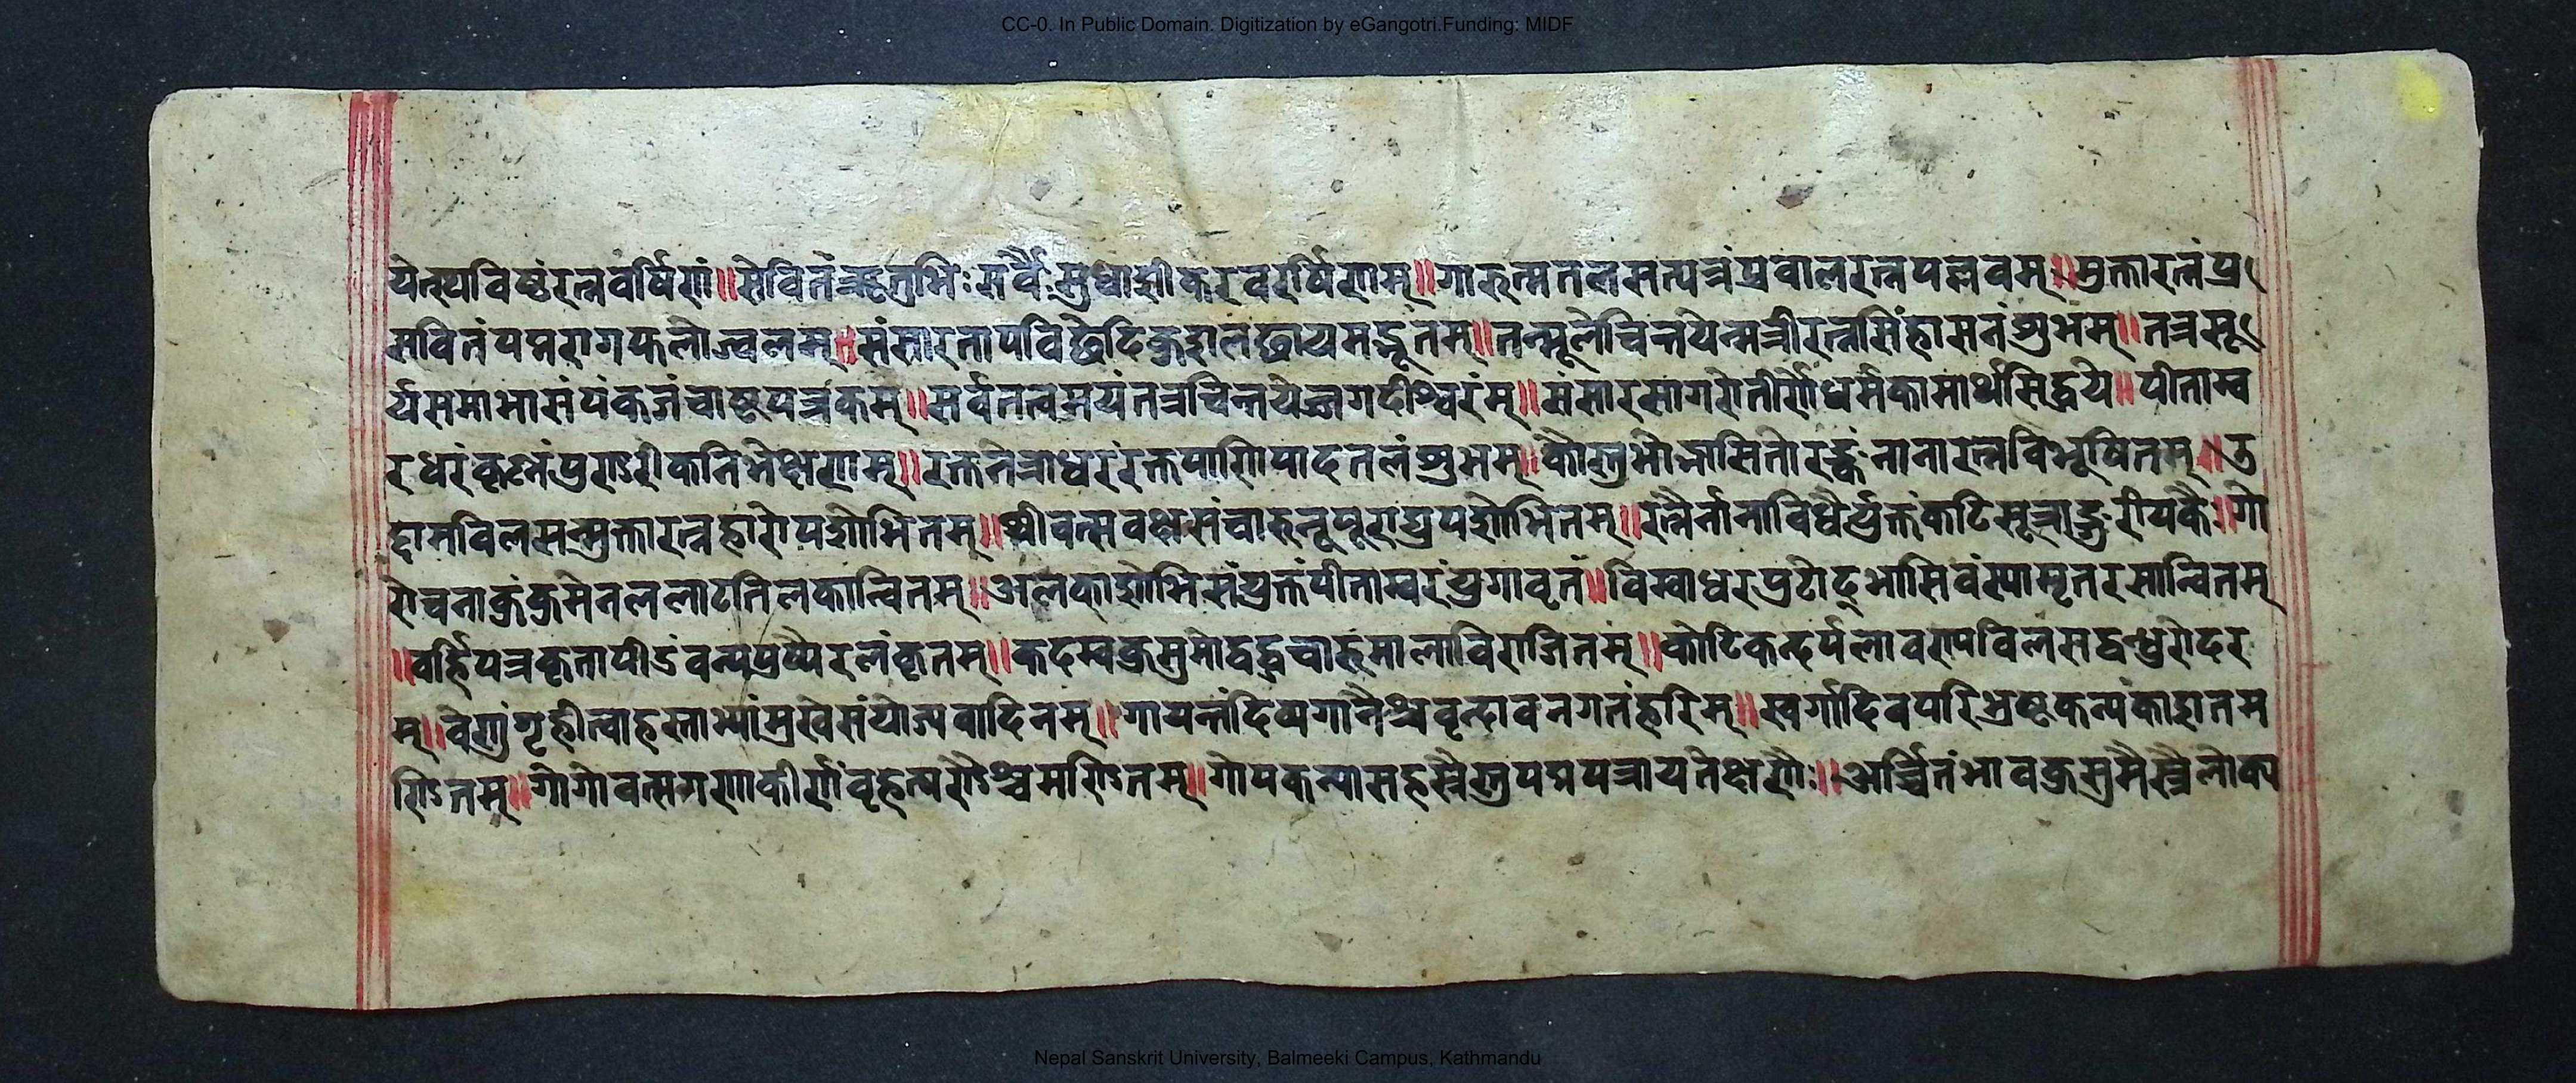 CC-0. In Public Domain. Digitization by eGangotri.Funding: MIDF
येत्स्पविष्टंरत्नवर्षिणं॥सेवितंऋतुभिःसर्वैःसुधाशीकरवरर्षिणाम्॥गारुत्मतलसत्पत्रंप्रवालरत्नपल्लवम्॥मुक्तारत्नंप्र
सवितंपद्मरागफलोज्वलम्॥संसारतापविछेदिकुशलछायमद्भूतम्॥तन्मूलेचिन्तयेन्मत्रीरत्नसिंहासनंशुभम्॥तत्रसू
र्यसमाभासंपंकजंचाष्टपत्रकम्॥सर्वतत्वमयंतत्रचिन्तयेज्जगदीश्वरंम्॥संसारसागरोतीर्णोधर्मकामार्थसिद्धये॥पीताम्ब
रधरंकृष्णंपुण्डरीकनिभेक्षणम्॥रक्तनेत्राधरंरक्तपाणिपादतलंशुभम्॥कौस्तुभोद्भासितोरस्कंनानारत्नविभूषितम्॥उ
द्दामविलसन्मुक्तारत्नहारोपशोभितम्॥श्रीवत्सवक्षसंचारुनूपूराद्युपशोभितम्॥रत्नैर्नानाविधैर्युक्तंकटिसूत्राङ्गुरीयकै॥गो
रोचनाकुंकुमेनललाटतिलकान्वितम्॥अलकाशोभिसंयुक्तंपीताम्बरंयुगावृतं॥बिम्बाधरप्रटोद्भासिवंस्पामृतरसान्वितम्
॥वर्हिपत्रकृतापीडंवन्यपुष्पैरलंकृतम्॥कदम्बकुसुमोद्वद्धचारुमालाविराजितम्॥कोटिकन्दर्पलावण्यविलसद्बन्धुरोदर
म्॥वेणुंगृहीत्वाहस्ताभ्यांमुखेसंयोज्यवादिनम्॥गायन्तंदिव्यगानैश्चवृन्दावनगतंहरिम्॥स्वर्गादिवपरिभ्रष्टकन्यकाशतम
ण्डितम्॥गोगोवत्सगणाकीर्णंवृहत्षण्डैश्चमण्डितम्॥गोपकन्यासहस्रैस्तुपद्मपत्रायतेक्षणैः॥अर्च्चितंभावकुसुमैस्त्रैलोक्य
Nepal Sanskrit University, Balmeeki Campus, Kathmandu